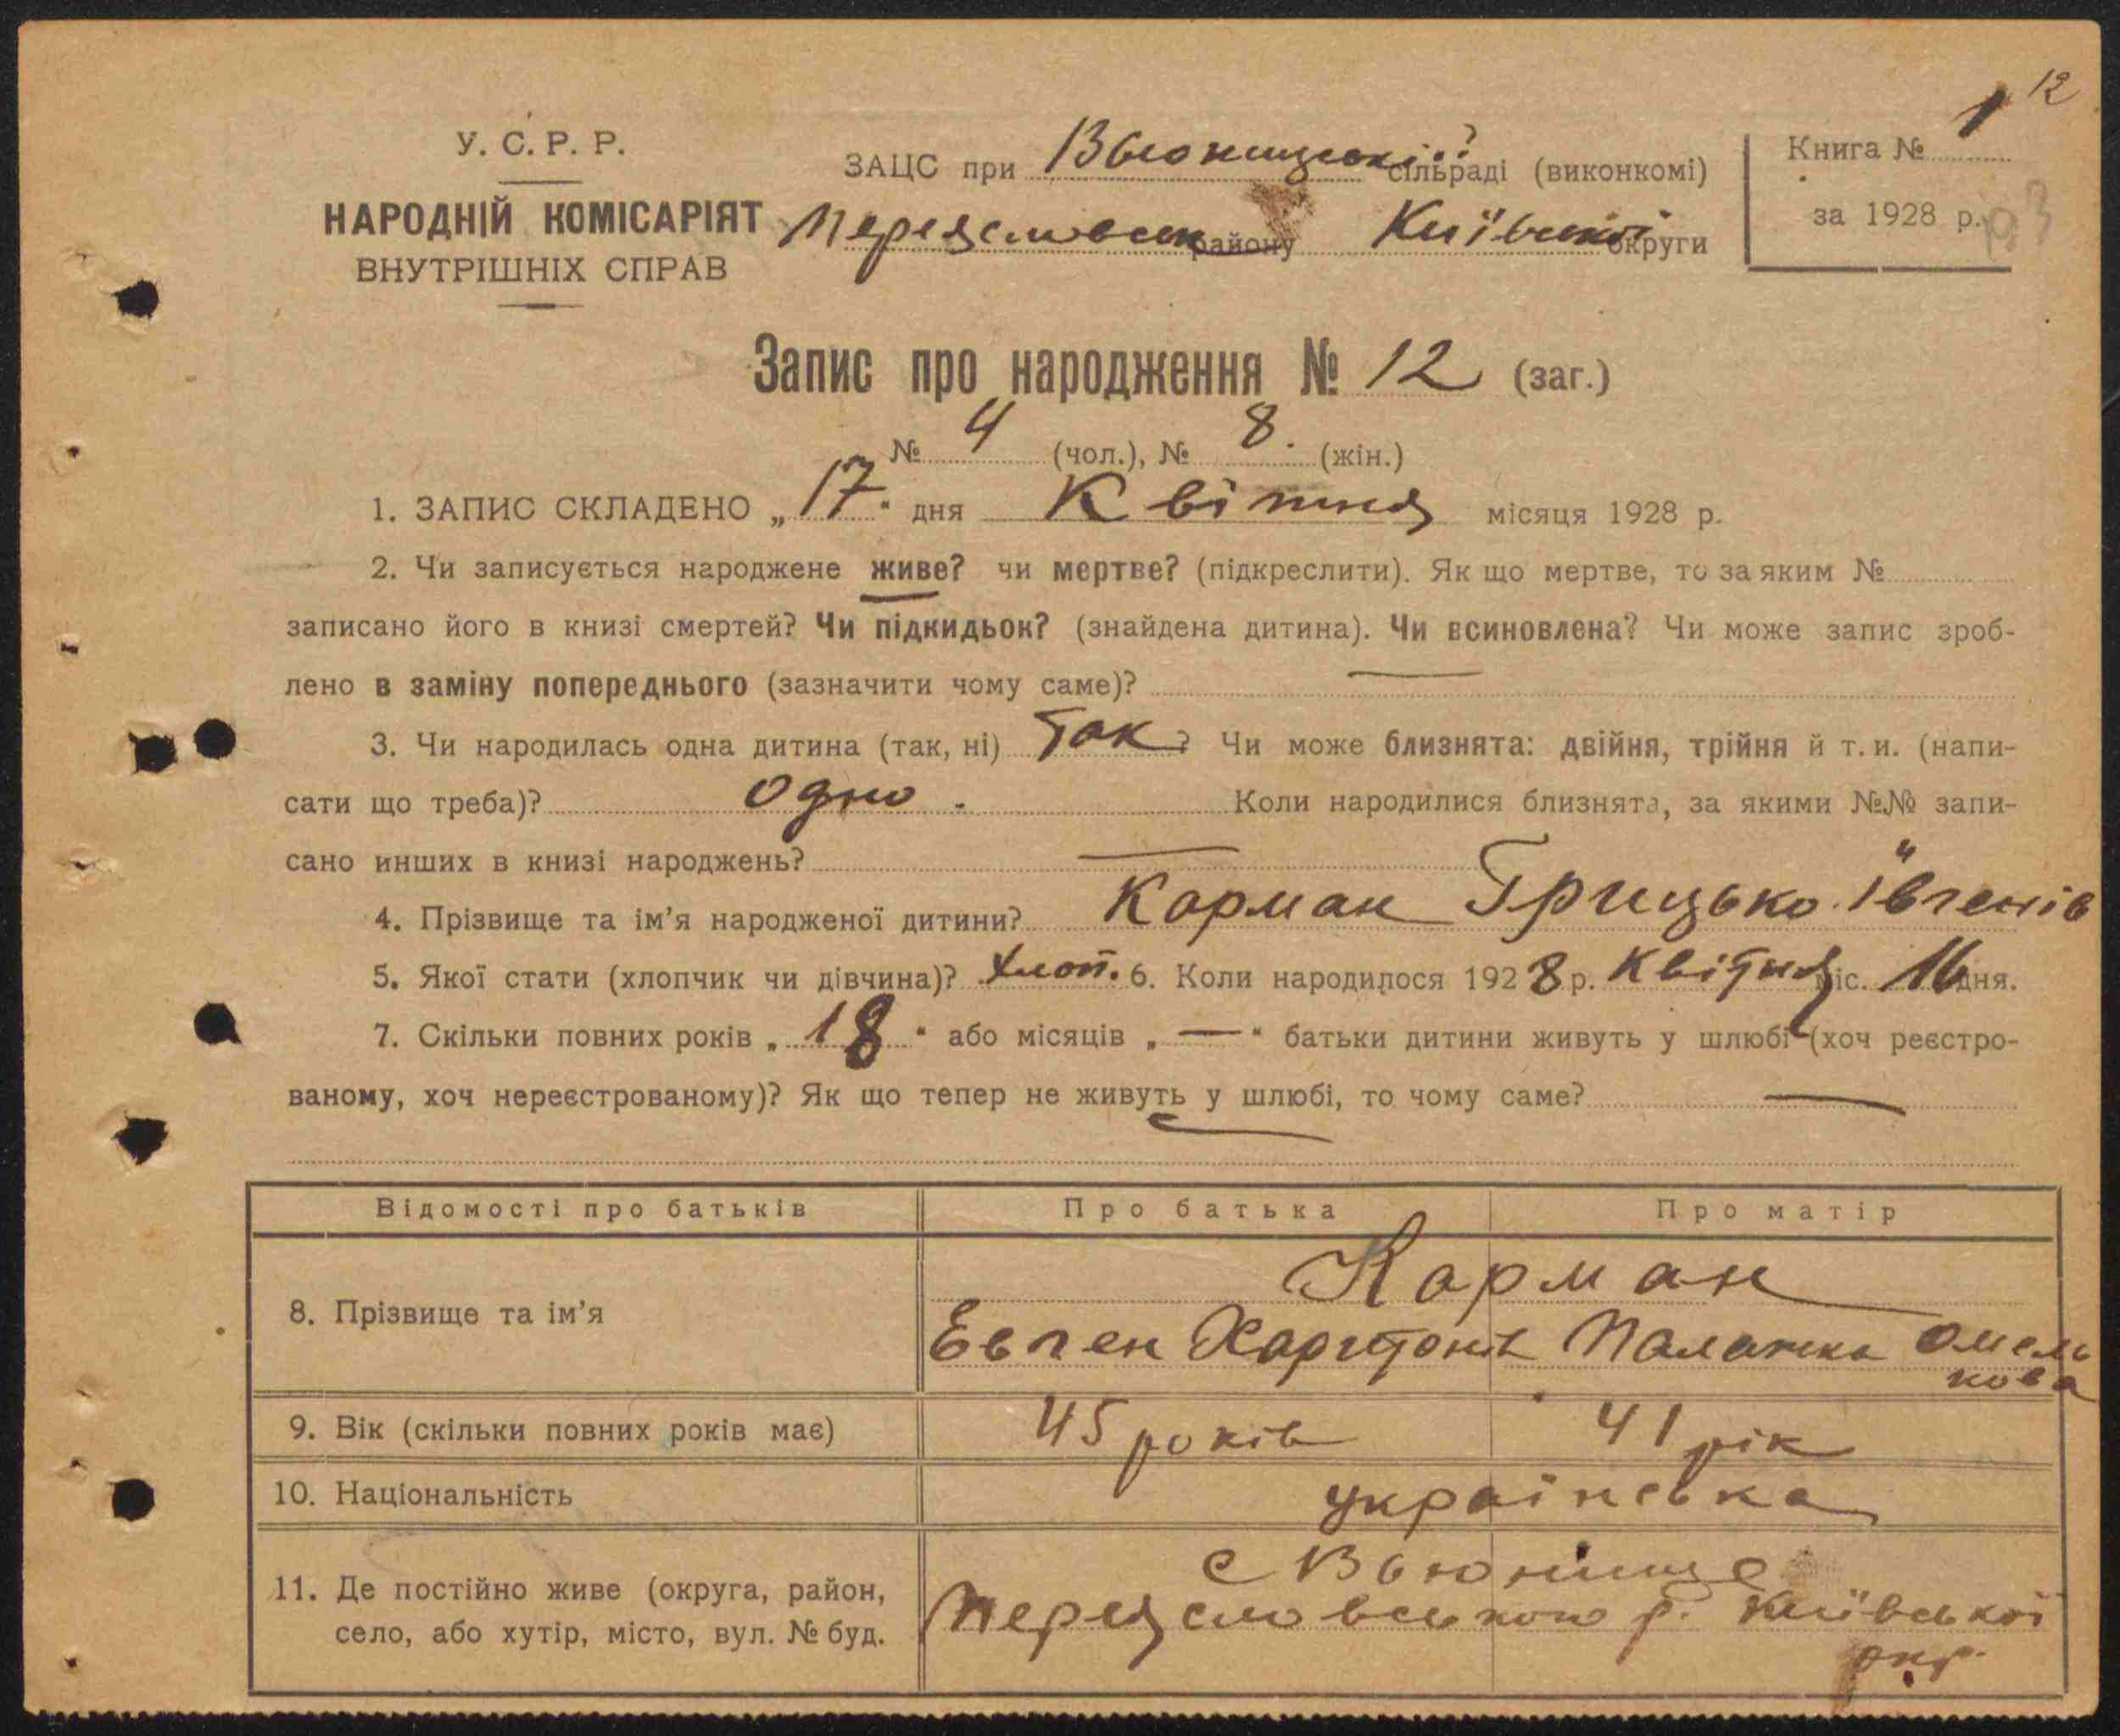 12
У. С. Р. Р.
НАРОДНІЙ КОМІСАРІЯТ
ВНУТРІШНІХ СПРАВ
ЗАЦС при Вьюницькій сільраді (виконкомі)
Переяславськ району Київської округи
Книга № 1
за 1928 р.
Запис про народження № 12 (заг.)
№ 4 (чол.), № 8. (жін.)
1. ЗАПИС СКЛАДЕНО „17“ дня Квітня місяця 1928 р.
2. Чи записується народжене живе? чи мертве? (підкреслити). Як що мертве, то за яким №
записано його в книзі смертей? Чи підкидьок? (знайдена дитина). Чи всиновлена? Чи може запис зроб-
лено в заміну попереднього (зазначити чому саме)?
3. Чи народилась одна дитина (так, ні) Так? Чи може близнята: двійня, трійня й т. и. (напи-
сати що треба)? одно. Коли народилися близнята, за якими №№ запи-
сано инших в книзі народжень? —
4. Прізвище та ім’я народженої дитини? Карман Грицько Івгенів
5. Якої стати (хлопчик чи дівчина)? хлоп. 6. Коли народилося 1928 р. Квітня міс. 16 дня.
7. Скільки повних років „18“ або місяців „—“ батьки дитини живуть у шлюбі (хоч реєстро-
ваному, хоч нереєстрованому)? Як що тепер не живуть у шлюбі, то чому саме? —
Відомості про батьків Про батька Про матір
8. Прізвище та ім’я Карман
Евген Харитонів Палажка Омель
кова
9. Вік (скільки повних років має) 45 років 41 рік
10. Національність українська
11. Де постійно живе (округа, район,
село, або хутір, місто, вул. № буд.
с Вьюнище
Переяславського р. Київської
окр.